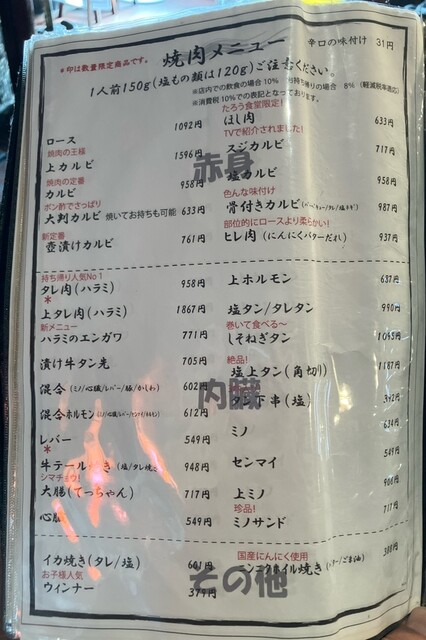 焼肉メニュー
辛口の味付け 31円
*印は数量限定商品です。
1人前150g(塩もの類は120g)ご注意ください。
※店内での飲食の場合10% お持ち帰りの場合 8% (軽減税率適応)
※消費税10%での表記となっております。
赤身
ロース 1092円
焼肉の王様
上カルビ 1596円
焼肉の定番
カルビ 958円
ポン酢でさっぱり
大判カルビ 焼いてお持ちも可能 633円
新定番
壺漬けカルビ 761円
たろう食堂限定!
はし肉 633円
TVで紹介されました!
スジカルビ 717円
塩カルビ 958円
色んな味付け
骨付きカルビ 987円
部位的にロースより柔らかい!
ヒレ肉 (にんにくバターだれ) 937円
内臓
持ち帰り人気No1
タレ肉(ハラミ) 958円
*
上タレ肉(ハラミ) 1867円
新メニュー
ハラミのエンガワ 771円
漬け牛タン先 705円
混合 (ミノ/心臓/レバー/豚/かしわ) 602円
混合ホルモン 612円
レバー 549円
*
牛テール (塩/タレ焼) 948円
シマチョウ!
大腸(てっちゃん) 717円
心臓 549円
上ホルモン 637円
塩タン/タレタン 990円
巻いて食べる～
しそねぎタン 1055円
絶品!
塩上タン(角切り) 1187円
タン下串(塩)
ミノ 549円
センマイ 549円
上ミノ 906円
珍品!
ミノサンド 717円
その他
イカ焼き(タレ/塩) 601円
お子様人気
ウィンナー 379円
国産にんにく使用
ニンニクホイル焼き